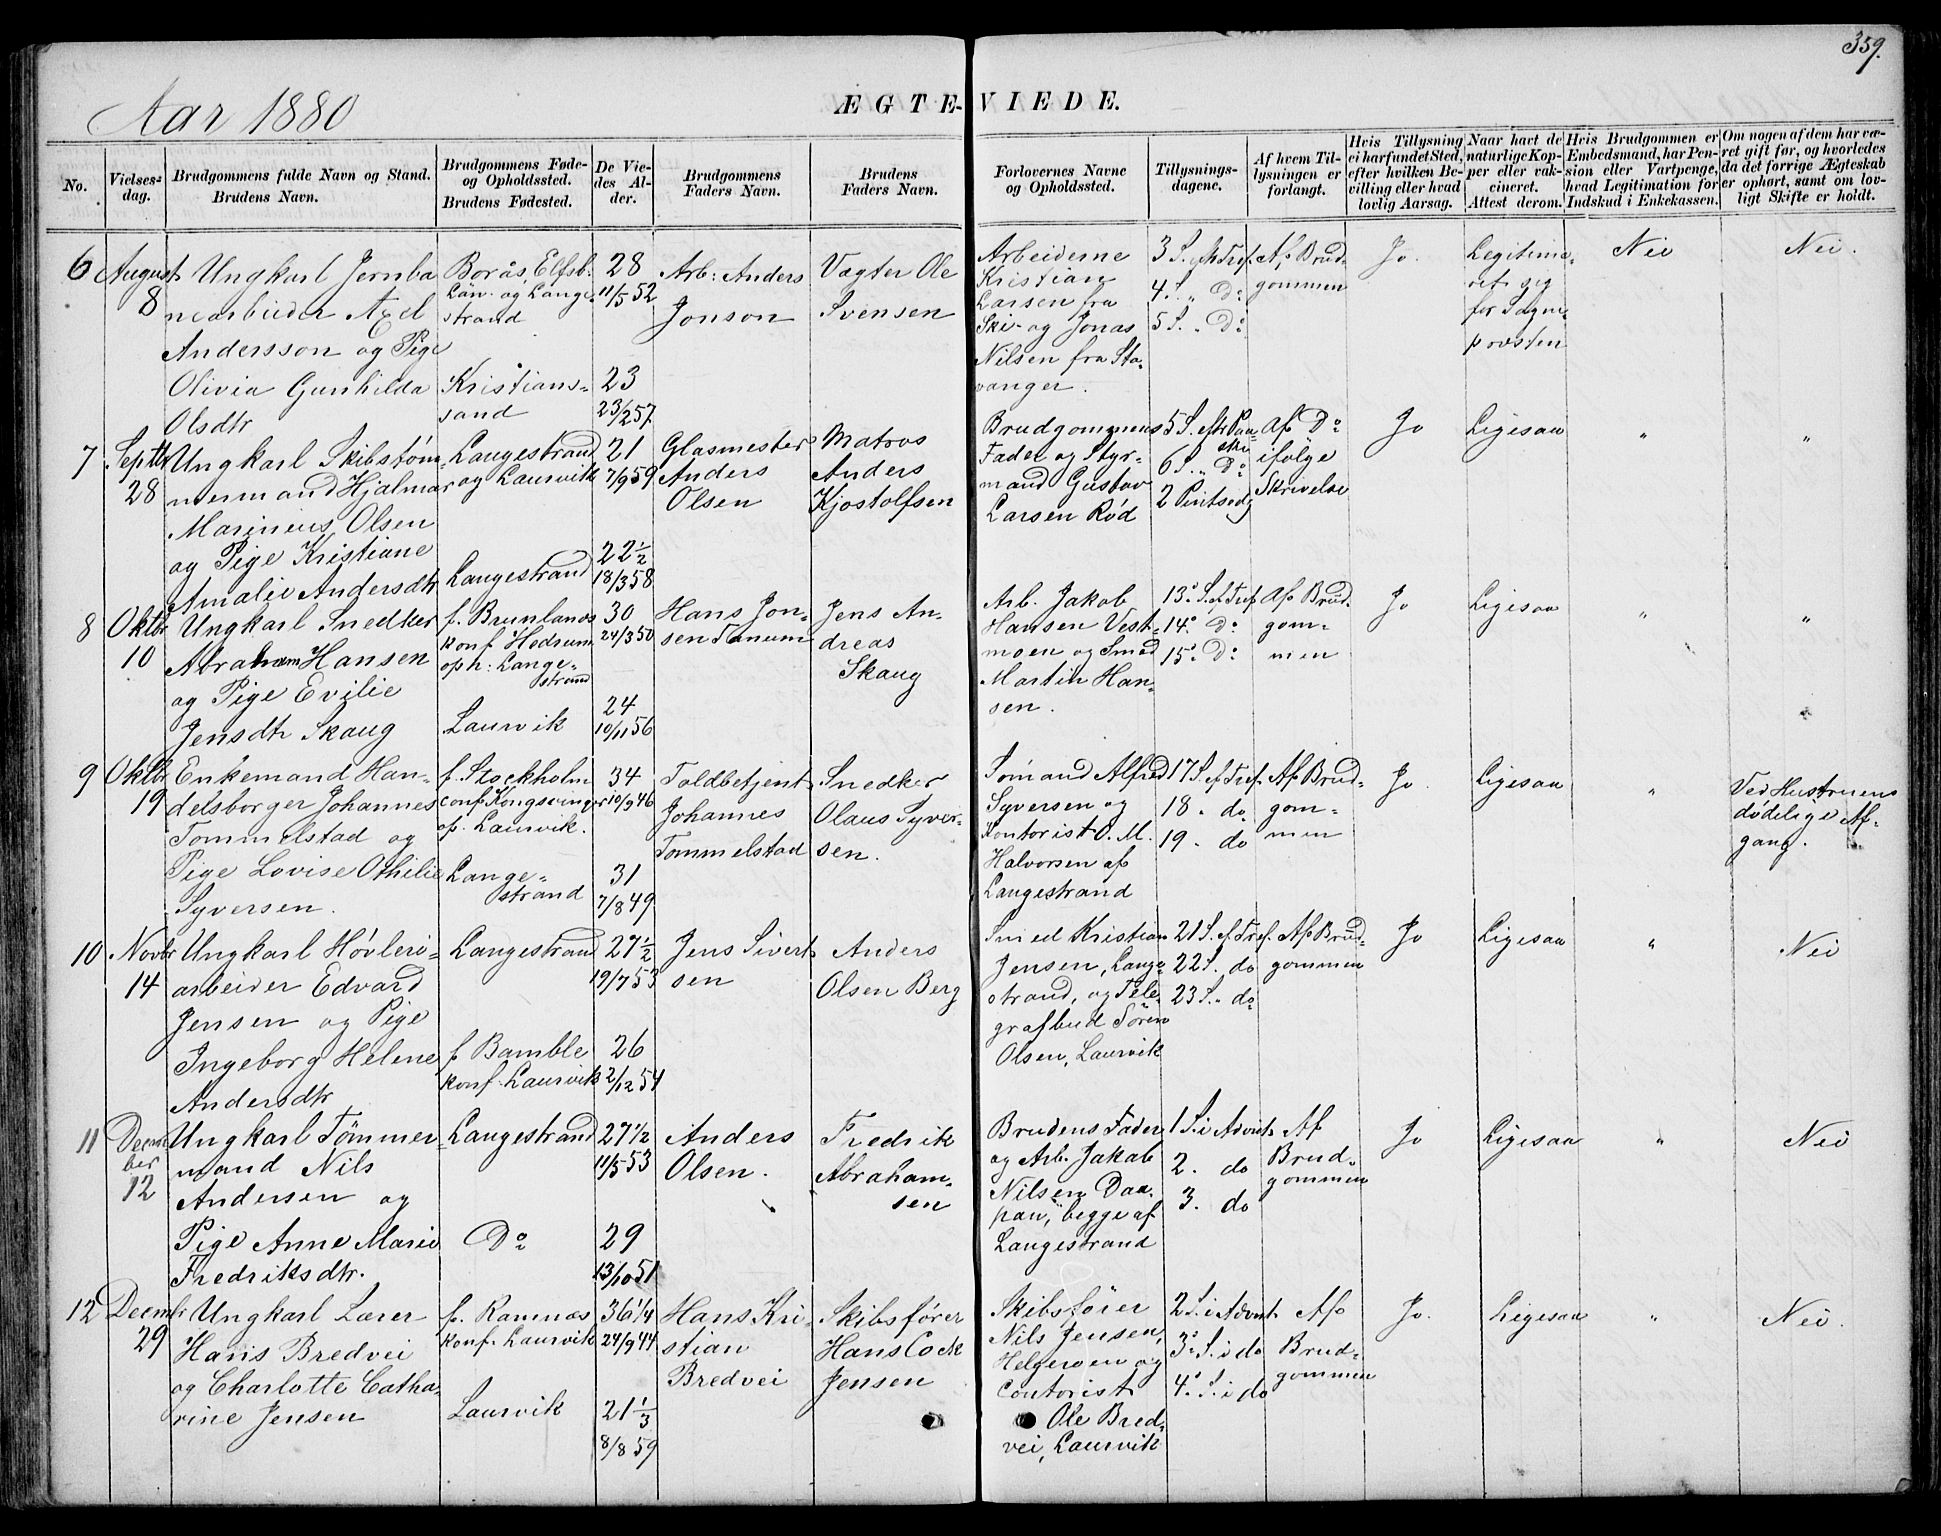 359.
Aar 1880
ÆGTE-VIEDE.
No.
Vielses-
dag.
Brudgommens fulde Navn og Stand.
Brudens Navn.
Brudgommens Føde-
og Opholdssted.
Brudens Fødested.
De Vie-
des Al-
der.
Brudgommens
Faders Navn.
Brudens
Faders Navn.
Forlovernes Navne
og Opholdssted.
Tillysnings-
dagene.
Af hvem Til-
lysningen er
forlangt.
Hvis Tillysning
ei har fundet Sted,
efter hvilken Be-
villing eller hvad
lovlig Aarsag.
Naar havt de
naturlige Kop-
per eller vak-
cineret.
Attest derom.
Hvis Brudgommen er
Embedsmand, har Pen-
sion eller Vartpenge,
hvad Legitimation for
Indskud i Enkekassen.
Om nogen af dem har væ-
ret gift før, og hvorledes
da det forrige Ægteskab
er ophørt, samt om lov-
ligt Skifte er holdt.
6
August
8
Ungkarl Jernba
nearbeider Axel
Andersson og Pige
Olivia Gunhilda
Olsdtr
Borås, Elfsb.
Län og Lange-
strand
Kristians-
sand
28
11/5 52
23
23/2 57
Arb: Anders
Jonson
Vægter Ole
Svensen
Arbeiderne
Kristian
Larsen fra
Ski- og Jonas
Nilsen fra Sta-
vanger.
3 S. eft Tref.
4 S. " Do
5 S. " Do
Af Brud-
gommen
Jo.
Legitime-
ret sig
for Sogne-
provsten
Nei
Nei.
7
Septb
28
Ungkarl Skibstøm-
mermand Hjalmar
Marinius Olsen
og Pige Kristiane
Amalie Andersdtr
Langestrand
og Laurvik
Langestrand
21
7/9 59
22 1/2
18/3 58
Glasmester
Anders
Olsen
Matros
Anders
Kjostolfsen
Brudgommens
Fader og Styr-
mand Gustav
Larsen Rød
5 S. eft Paa
ske
6 S. " Do
2 Pintsedg
Af Do
ifølge
Skrivelse
Jo
Ligesaa
"
"
8
Oktbr
10
Ungkarl Snedker
Abraham Hansen
og Pige Evilie
Jensdtr Skaug
f. Brunlanes
konf. Hedrum
oph: Lange-
strand
Laurvik
30
24/3 50
24
10/11 56
Hans Jon-
sen Tanum
Jens An-
dreas
Skaug
Arb. Jakob
Hansen Vest-
moen og Smed
Martin Han-
sen.
13. S. ef. Tref.
14. Do
15. Do
Af Brud-
gom-
men
Jo
Ligesaa
"
"
9
Oktbr
19
Enkemand Han-
delsborger Johannes
Tommelstad og
Pige Lovise Othilie
Syversen.
f. Stockholm
conf. Kongsvinger
op. Laurvik.
Lange-
strand
34
10/9 46
31
7/8 49
Toldbetjent
Johannes
Tommelstad
Snedker
Olaus Syver-
sen.
Sømand Alfred
Syversen og
Kontorist O. M.
Halvorsen af
Langestrand
17 S. ef. Tref.
18 . do
19 . do
Af Brud-
gom-
men
Jo.
Ligesaa
"
Ved Hustruens
dødelige Af-
gang.
10
Novbr
14
Ungkarl Høvleri-
arbeider Edvard
Jensen og Pige
Ingeborg Helene
Andersdtr
Langestrand
f Bamble
konf. Laurvik
27 1/2
19/7 53
26
2/12 54
Jens Sivert
sen
Anders
Olsen Berg
Smed Kristian
Jensen, Lange-
strand, og Tele-
grafbud Søren
Olsen, Laurvik
21 S. ef. Tref.
22 S. do
23 S. do
Af Brud-
gommen
Jo
Ligesaa
"
Nei
11
Decem
ber
12
Ungkarl Tømmer
mand Nils
Andersen og
Pige Anne Marie
Fredriksdtr.
Langestrand
Do
27 1/2
11/5 53
29
13/10 51
Anders
Olsen.
Fredrik
Abraham-
sen
Brudens Fader
og Arb. Jakob
Nilsen Daa-
pan, begge af
Langestrand
1 S. i Advent
2. do
3. do
Af
Brud-
gommen
Jo
Ligesaa
"
Nei
12
Decembr
29
Ungkarl Lærer
Hans Bredvei
og Charlotte Catha-
rine Jensen
f. Ramnæs
konf. Laurvik
Laurvik
36 1/4
24/9 44
21 1/3
8/8 59
Hans Kri-
stian
Bredvei
Skibsfører
Hans Cock
Jensen
Skibsfører
Nils Jensen,
Helgeroen og
Contorist
Ole Bred-
vei, Laurvik
2 S. i Advent
3. S. i do
4. S. i do
Af
Brud-
gommen
Jo.
Ligesaa
"
Nei.